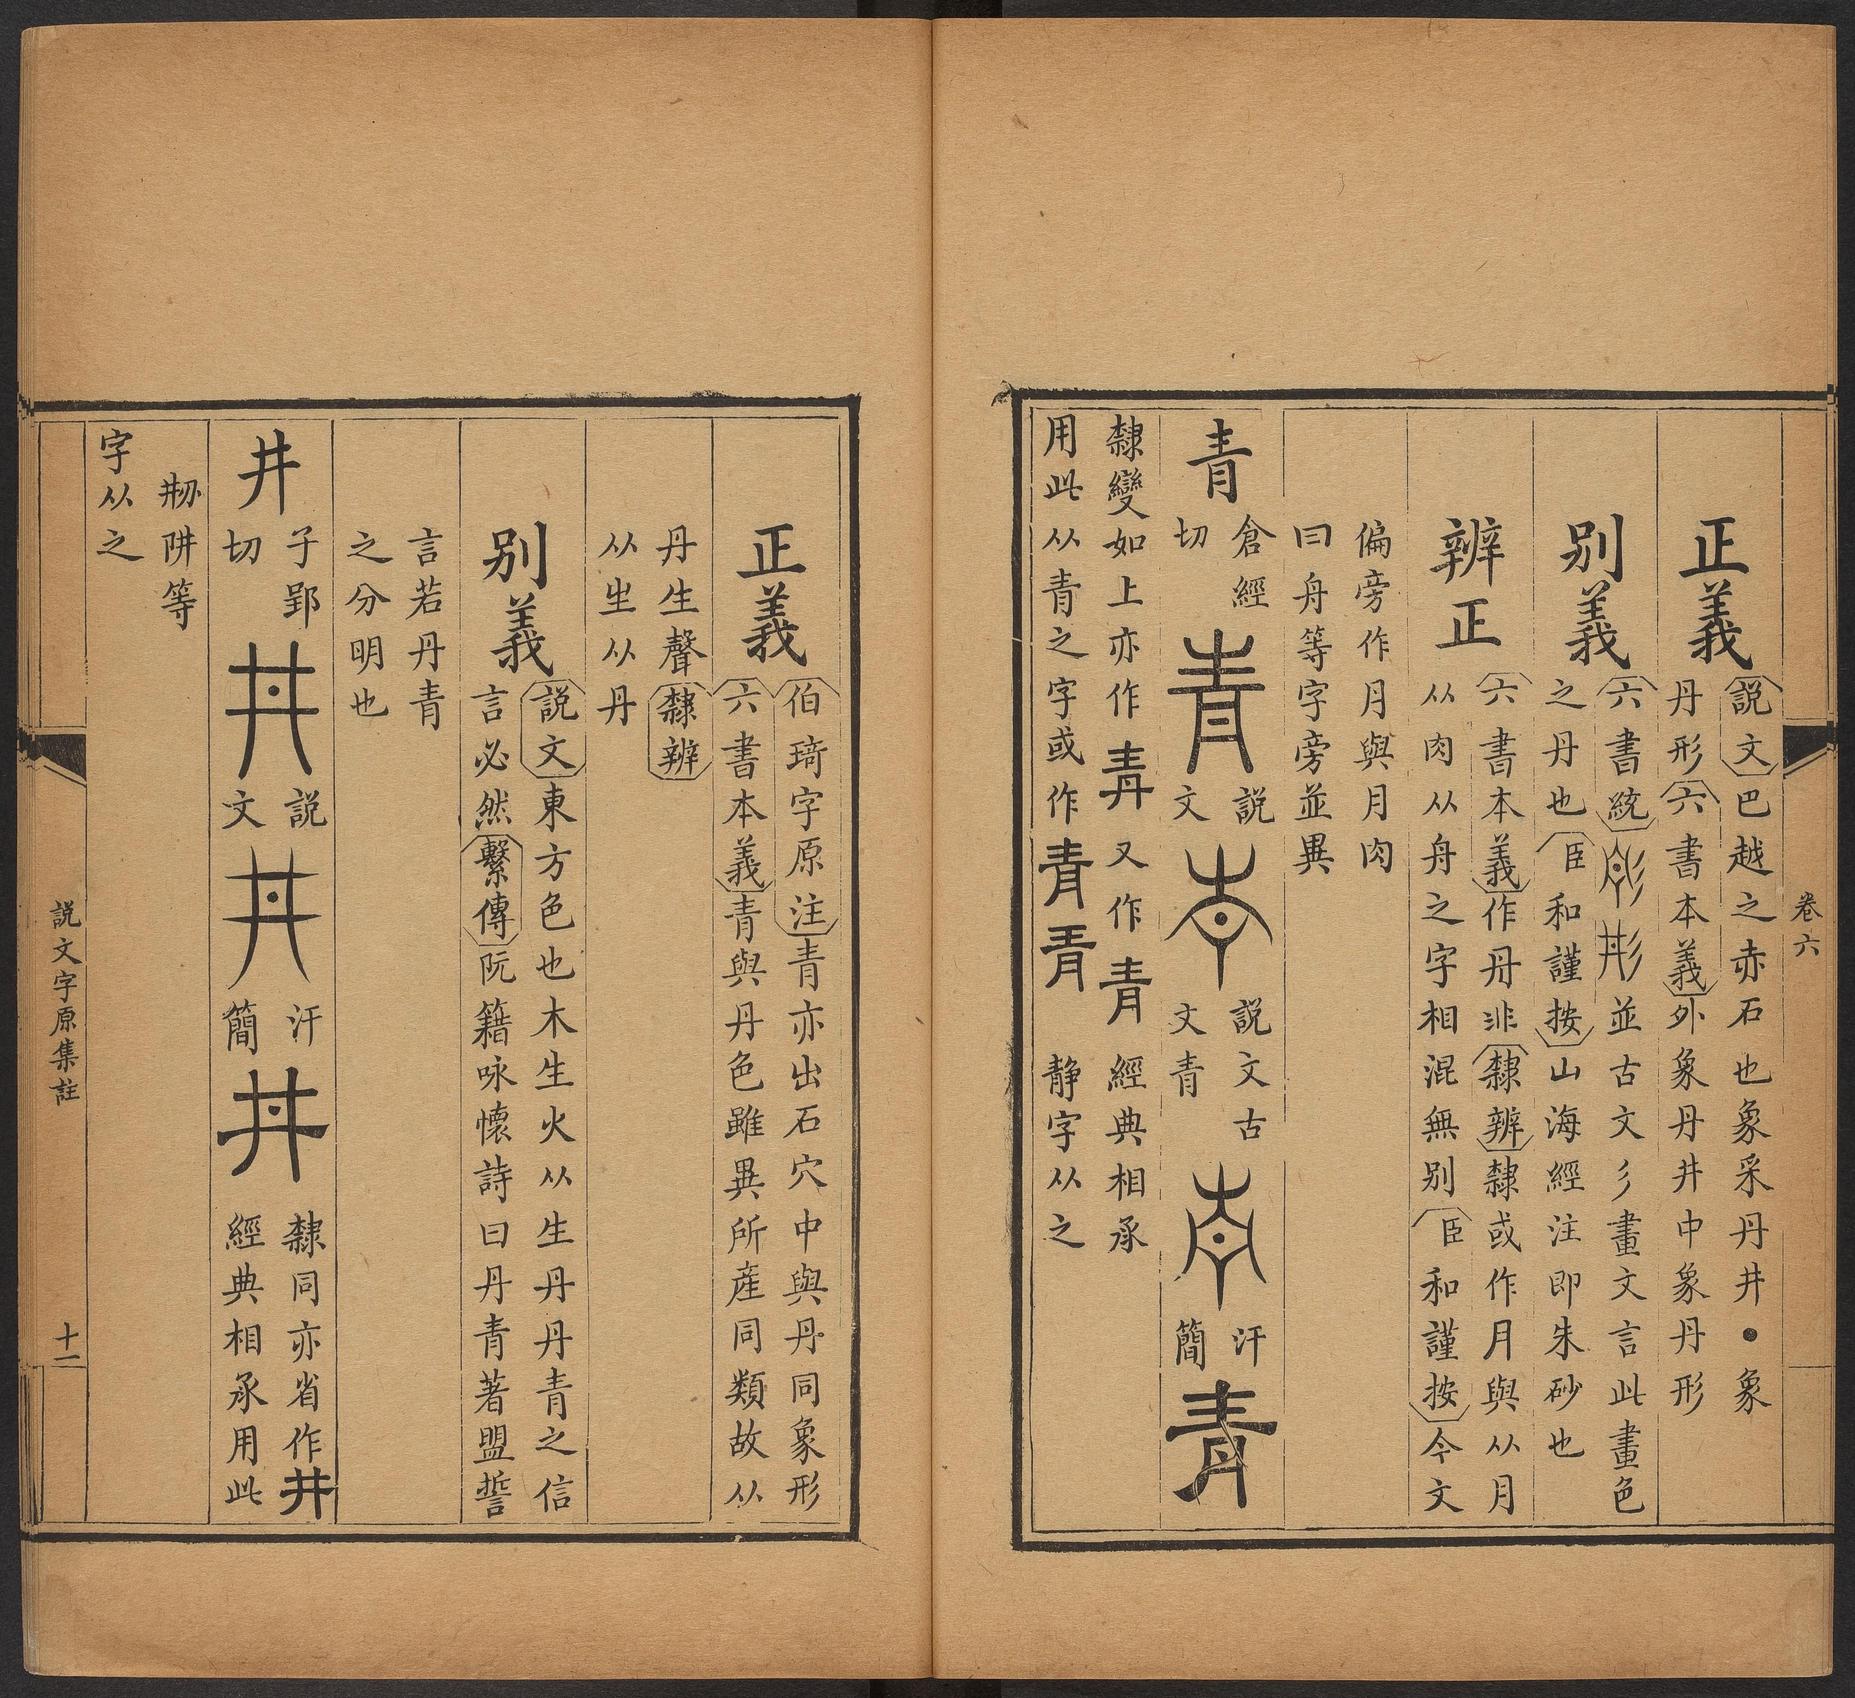 卷六
正義
説文巴越之赤石也象采丹井●象
丹形六書本義外象丹井中象丹形
别義
六書統彤並古文彡畫文言此畫色
之丹也臣和謹按山海經注即朱砂也
辨正
六書本義作丹非隸辨隸或作月與从月
从肉从舟之字相混無别臣和謹按今文
偏旁作月與月肉
曰舟等字旁並異
青
倉經
切
青
説
文
説文古
文青
汗
簡
青
隸變如上亦作青又作青 經典相承
用此从青之字或作青青 静字从之
正義
伯琦字原注青亦出石穴中與丹同象形
六書本義青與丹色雖異所産同類故从
丹生聲隸辨
从生从丹
别義
説文東方色也木生火从生丹丹青之信
言必然繫傳阮籍咏懷詩曰丹青著盟誓
言若丹青
之分明也
井
子郢
切
丼
説
文
丼
汗
簡
丼
隸同亦省作井
經典相承用此
剏阱等
字从之
説文字原集註
十一